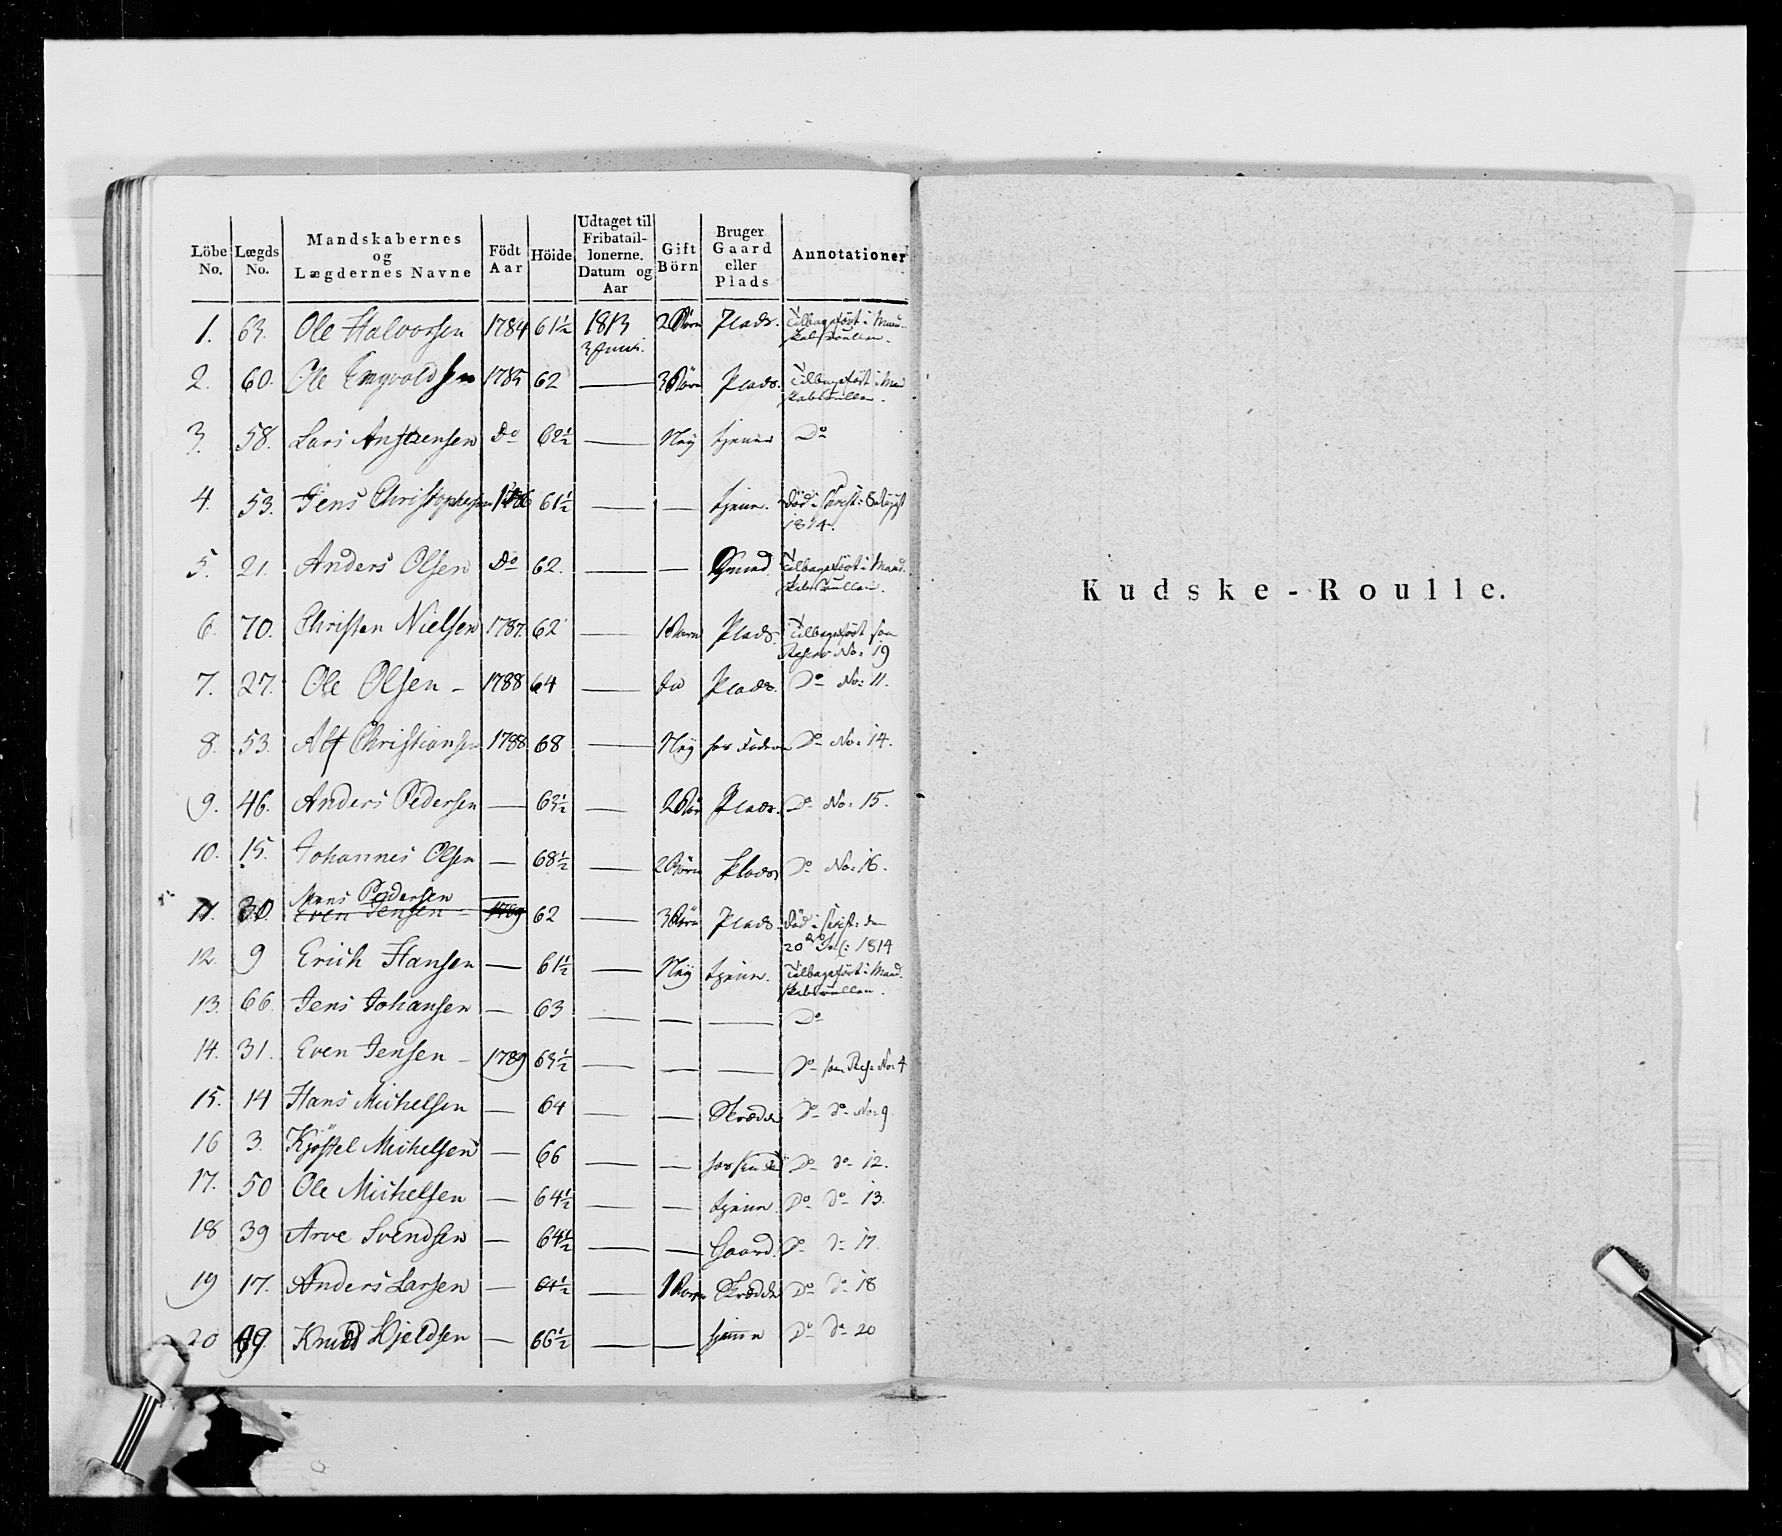 Löbe No. | Lægds No. | Mandskabernes og Lægdernes Navne | Födt Aar | Höide | Udtaget til Fribatail- lonerne. Datum og Aar | Gift Börn | Bruger Gaard eller Plads | Annotationer
1. 63. Ole Halvorsen 1784 61½ 1813 3 Juni. 2 Börn Plads. Tilbageført i Mand- skabsroullen.
2. 60. Ole Engvoldsen 1785 62 — 3 Börn Plads. Tilbageført i Mand skabsrullen.
3. 58. Lars Anstensen Do 62½ — Nej tjener Do
4. 53. Jens Christophersen 1786 61½ — — tjener. Död i 8 August 1814.
5. 21. Anders Olsen Do 62. — — Tilbageført i Mand. skabsrullen.
6. 70. Christen Nielsen 1787. 62 — 1 Barn Plads Tilbageført som Reserv No: 19
7. 27. Ole Olsen – 1788 64 — do Plads. Do No: 11.
8. 53. Alf Christiansen 1788 68 — Nej hos Faderen Do No: 14.
9. 46. Anders Pedersen — 63½ — 2 Bör Plads. Do No: 15.
10. 15. Johannes Olsen — 68½ — 2 Börn Plads Do No: 16.
Mons Pedersen —
11. 30. Even Jensen – 1789 62 — 3 Börn Plads. Död i den 20de 1814
12. 9 Erich Hansen — 61½ — Nej tjener. Tilbageført i Mand. skabsrullen.
13. 66. Jens Johansen — 63 — — — Do
14. 31. Even Jensen – 1789 63½ — — — Do som Res: No: 4
15. 14 Hans Michelsen — 64 — — Skrædder Do do No: 9.
16 3. Kjøstel Michelsen — 66 — — Do do 12.
17. 50 Ole Michelsen — 64½ — — tjener Do do 13.
18 39 Arve Svendsen — 64½ — — Gaard. Do do 17.
19 17. Anders Larsen — 64½ — 1 Barn Skrædder Do do 18
20 49. Knud Kjeldsen — 66½ — — tjener Do do 20
Kudske-Roulle.